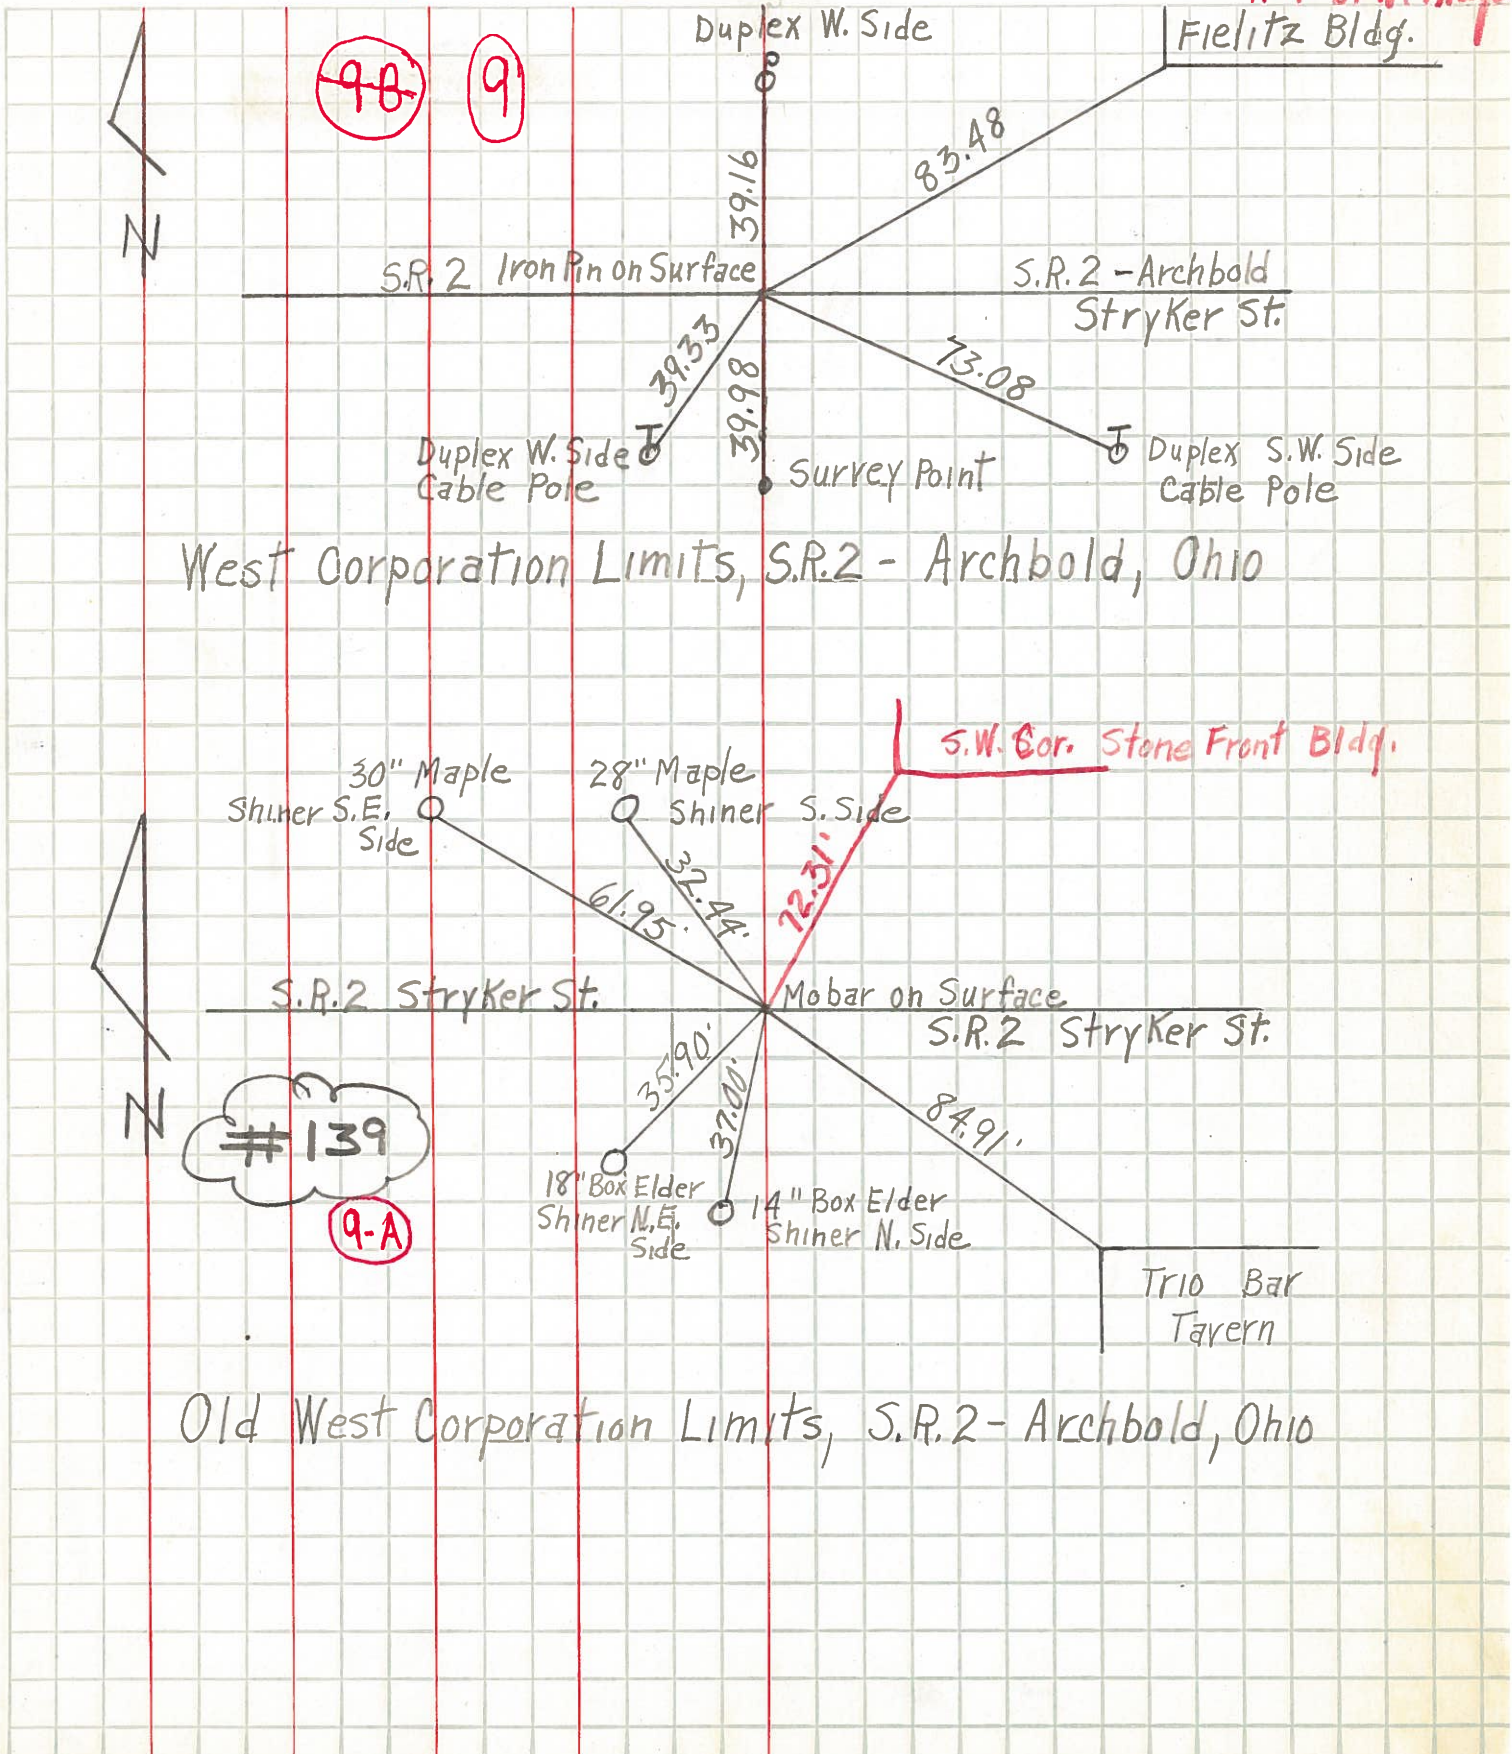 Duplex W. Side
Fielitz Bldg.
9B
9
83.48
39.16
N
S.R. 2 Iron Pin on Surface
S.R. 2 - Archbold
Stryker St.
39.33
39.98
73.08
Duplex W. Side
Cable Pole
Survey Point
Duplex S.W. Side
Cable Pole
West Corporation Limits, S.R.2 - Archbold, Ohio
S.W. Cor. Stone Front Bldg.
30" Maple
Shiner S.E.
Side
28" Maple
Shiner S. Side
72.31'
61.95'
32.44'
S.R.2 Stryker St.
Mobar on Surface
S.R.2 Stryker St.
35.90'
37.00'
84.91'
N
# 139
9-A
18" Box Elder
Shiner N.E.
Side
14" Box Elder
Shiner N. Side
Trio Bar
Tavern
Old West Corporation Limits, S.R.2 - Archbold, Ohio